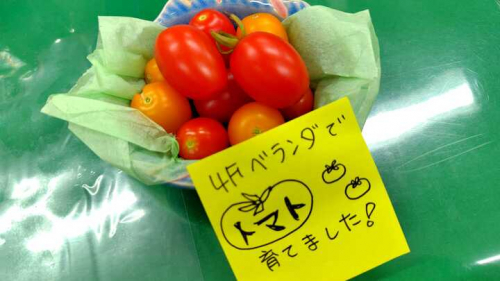 4Fベランダで
トマト
育てました!